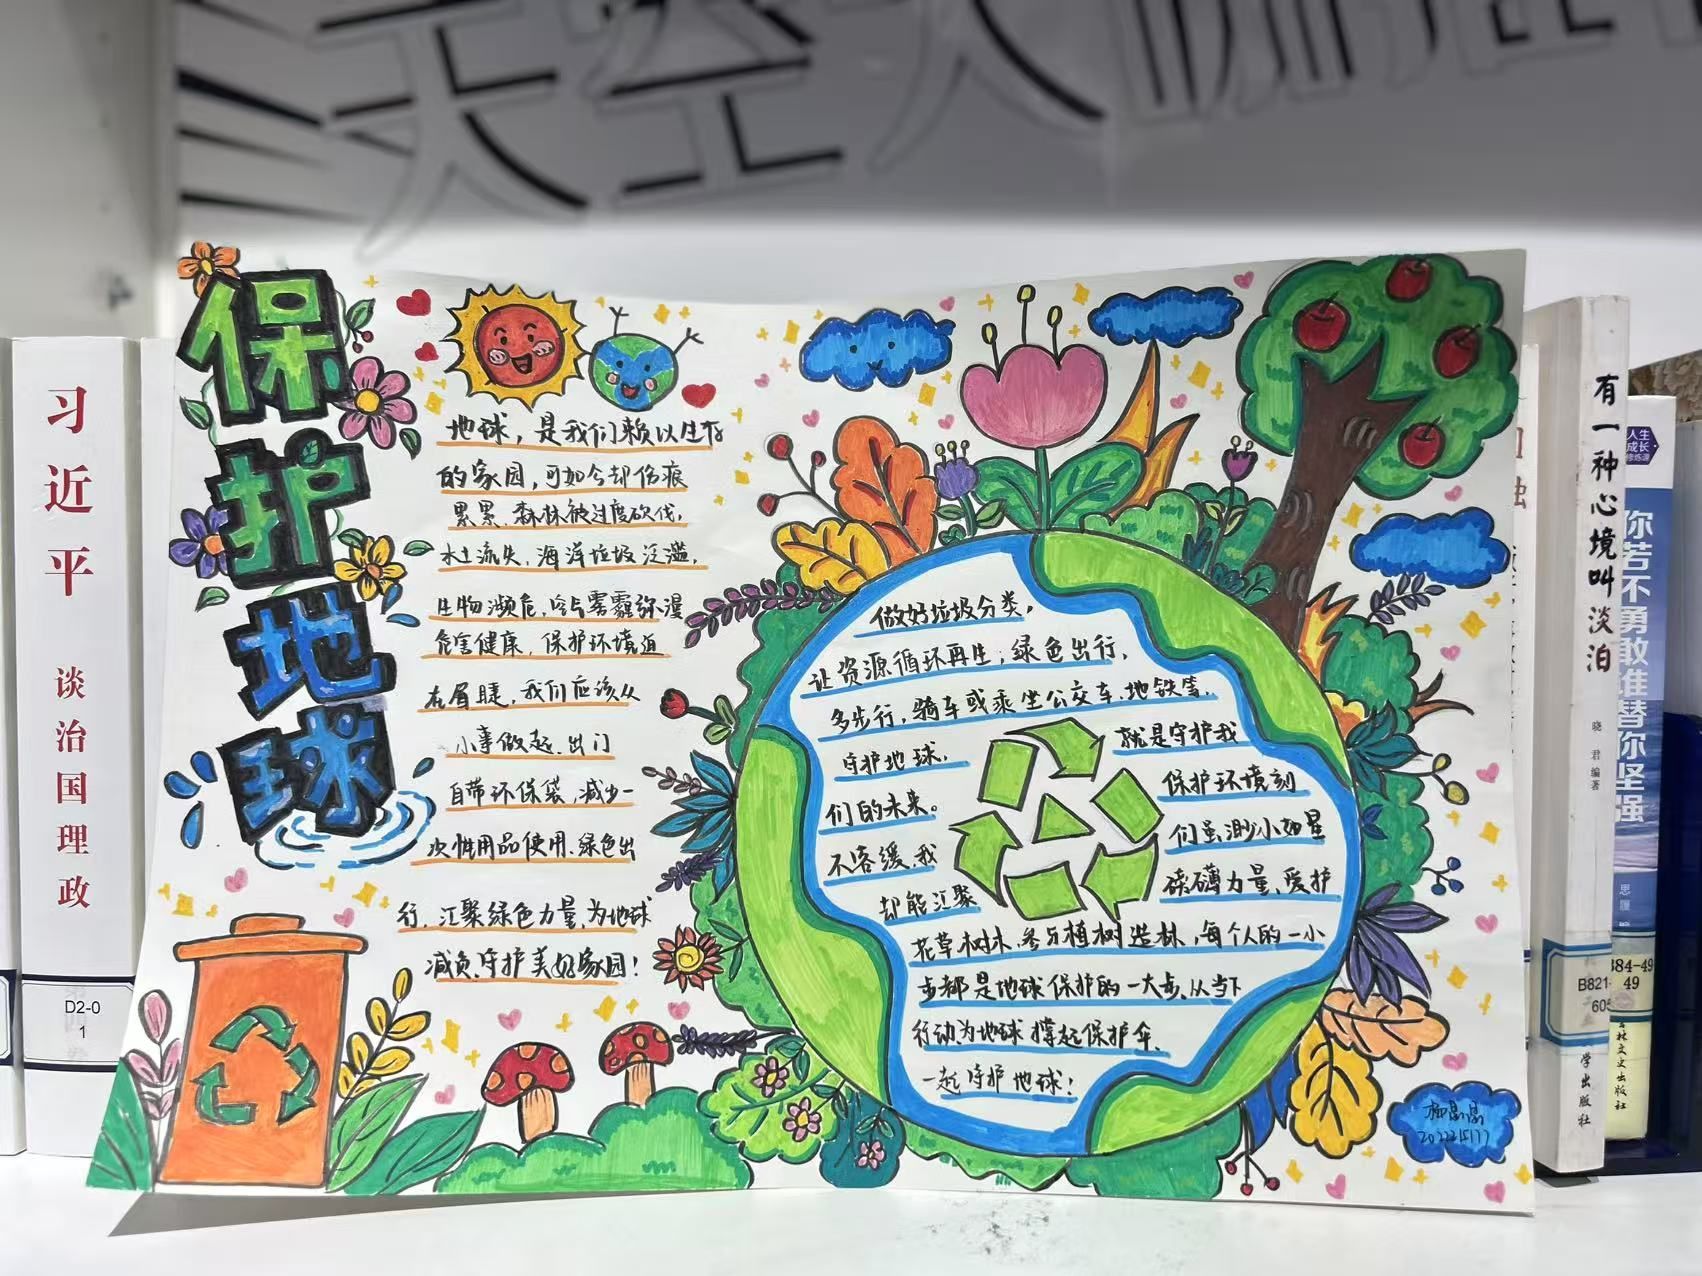 天空
保护地球
地球，是我们赖以生存
的家园，可如今却伤痕
累累，森林被过度砍伐，
水土流失，海洋垃圾泛滥，
生物濒危，空气雾霾弥漫
危害健康，保护环境迫
在眉睫，我们应该从
小事做起，出门
自带环保袋，减少一
次性用品使用，绿色出
行，汇聚绿色力量，为地球
减负，守护美好家园！
做好垃圾分类，
让资源循环再生，绿色出行，
多步行，骑车或乘坐公交车、地铁等，
守护地球，
就是守护我
们的未来。
保护环境刻
不容缓，我
们虽渺小如星
却能汇聚
磅礴力量，爱护
花草树木，参与植树造林，每个人的一小
步都是地球保护的一大步，从当下
行动，为地球撑起保护伞，
一起守护地球！
习近平 谈治国理政
D2-0
1
有一种心境叫淡泊
晓君 编著
B821-
605
学出版社
人生
成长
修炼课
你若不勇敢谁替你坚强
思履 编
384-49
49
吉林文史出版社